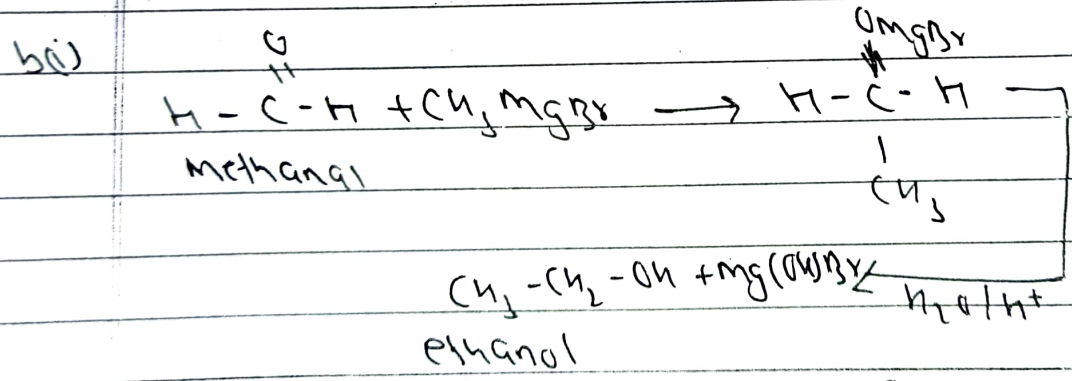 b(i)
O
||
H - C - H + CH3MgBr ⟶ H - C - H
OMgBr
|
CH3
Methanal
CH3 - CH2 - OH + Mg(OH)Br
H2O/H+
ethanol